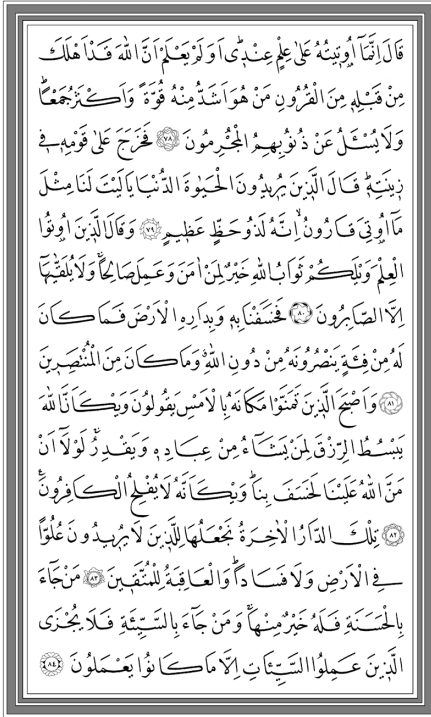 قَالَ اِنَّمَٓا اُو۫ت۪يتُهُ عَلٰى عِلْمٍ عِنْد۪يۜ اَوَلَمْ يَعْلَمْ اَنَّ اللّٰهَ قَدْ اَهْلَكَ
مِنْ قَبْلِه۪ مِنَ الْقُرُونِ مَنْ هُوَ اَشَدُّ مِنْهُ قُوَّةً وَاَكْثَرُ جَمْعًاۜ
وَلَا يُسْـَٔلُ عَنْ ذُنُوبِهِمُ الْمُجْرِمُونَ ﴿٧٨﴾ فَخَرَجَ عَلٰى قَوْمِه۪ ف۪ي
ز۪ينَتِه۪ۜ قَالَ الَّذ۪ينَ يُر۪يدُونَ الْحَيٰوةَ الدُّنْيَا يَا لَيْتَ لَنَا مِثْلَ
مَٓا اُو۫تِيَ قَارُونُۙ اِنَّهُ لَذُو حَظٍّ عَظ۪يمٍ ﴿٧٩﴾ وَقَالَ الَّذ۪ينَ اُو۫تُوا
الْعِلْمَ وَيْلَكُمْ ثَوَابُ اللّٰهِ خَيْرٌ لِمَنْ اٰمَنَ وَعَمِلَ صَالِحًاۚ وَلَا يُلَقّٰيهَٓا
اِلَّا الصَّابِرُونَ ﴿٨٠﴾ فَخَسَفْنَا بِه۪ وَبِدَارِهِ الْاَرْضَ فَمَا كَانَ
لَهُ مِنْ فِئَةٍ يَنْصُرُونَهُ مِنْ دُونِ اللّٰهِۗ وَمَا كَانَ مِنَ الْمُنْتَصِر۪ينَ
﴿٨١﴾ وَاَصْبَحَ الَّذ۪ينَ تَمَنَّوْا مَكَانَهُ بِالْاَمْسِ يَقُولُونَ وَيْكَاَنَّ اللّٰهَ
يَبْسُطُ الرِّزْقَ لِمَنْ يَشَٓاءُ مِنْ عِبَادِه۪ وَيَقْدِرُۚ لَوْلَٓا اَنْ
مَنَّ اللّٰهُ عَلَيْنَا لَخَسَفَ بِنَاۜ وَيْكَاَنَّهُ لَا يُفْلِحُ الْكَافِرُونَ۟
﴿٨٢﴾ تِلْكَ الدَّارُ الْاٰخِرَةُ نَجْعَلُهَا لِلَّذ۪ينَ لَا يُر۪يدُونَ عُلُوًّا
فِي الْاَرْضِ وَلَا فَسَادًاۜ وَالْعَاقِبَةُ لِلْمُتَّق۪ينَ ﴿٨٣﴾ مَنْ جَٓاءَ
بِالْحَسَنَةِ فَلَهُ خَيْرٌ مِنْهَاۚ وَمَنْ جَٓاءَ بِالسَّيِّئَةِ فَلَا يُجْزَى
الَّذ۪ينَ عَمِلُوا السَّيِّـَٔاتِ اِلَّا مَا كَانُوا يَعْمَلُونَ ﴿٨٤﴾